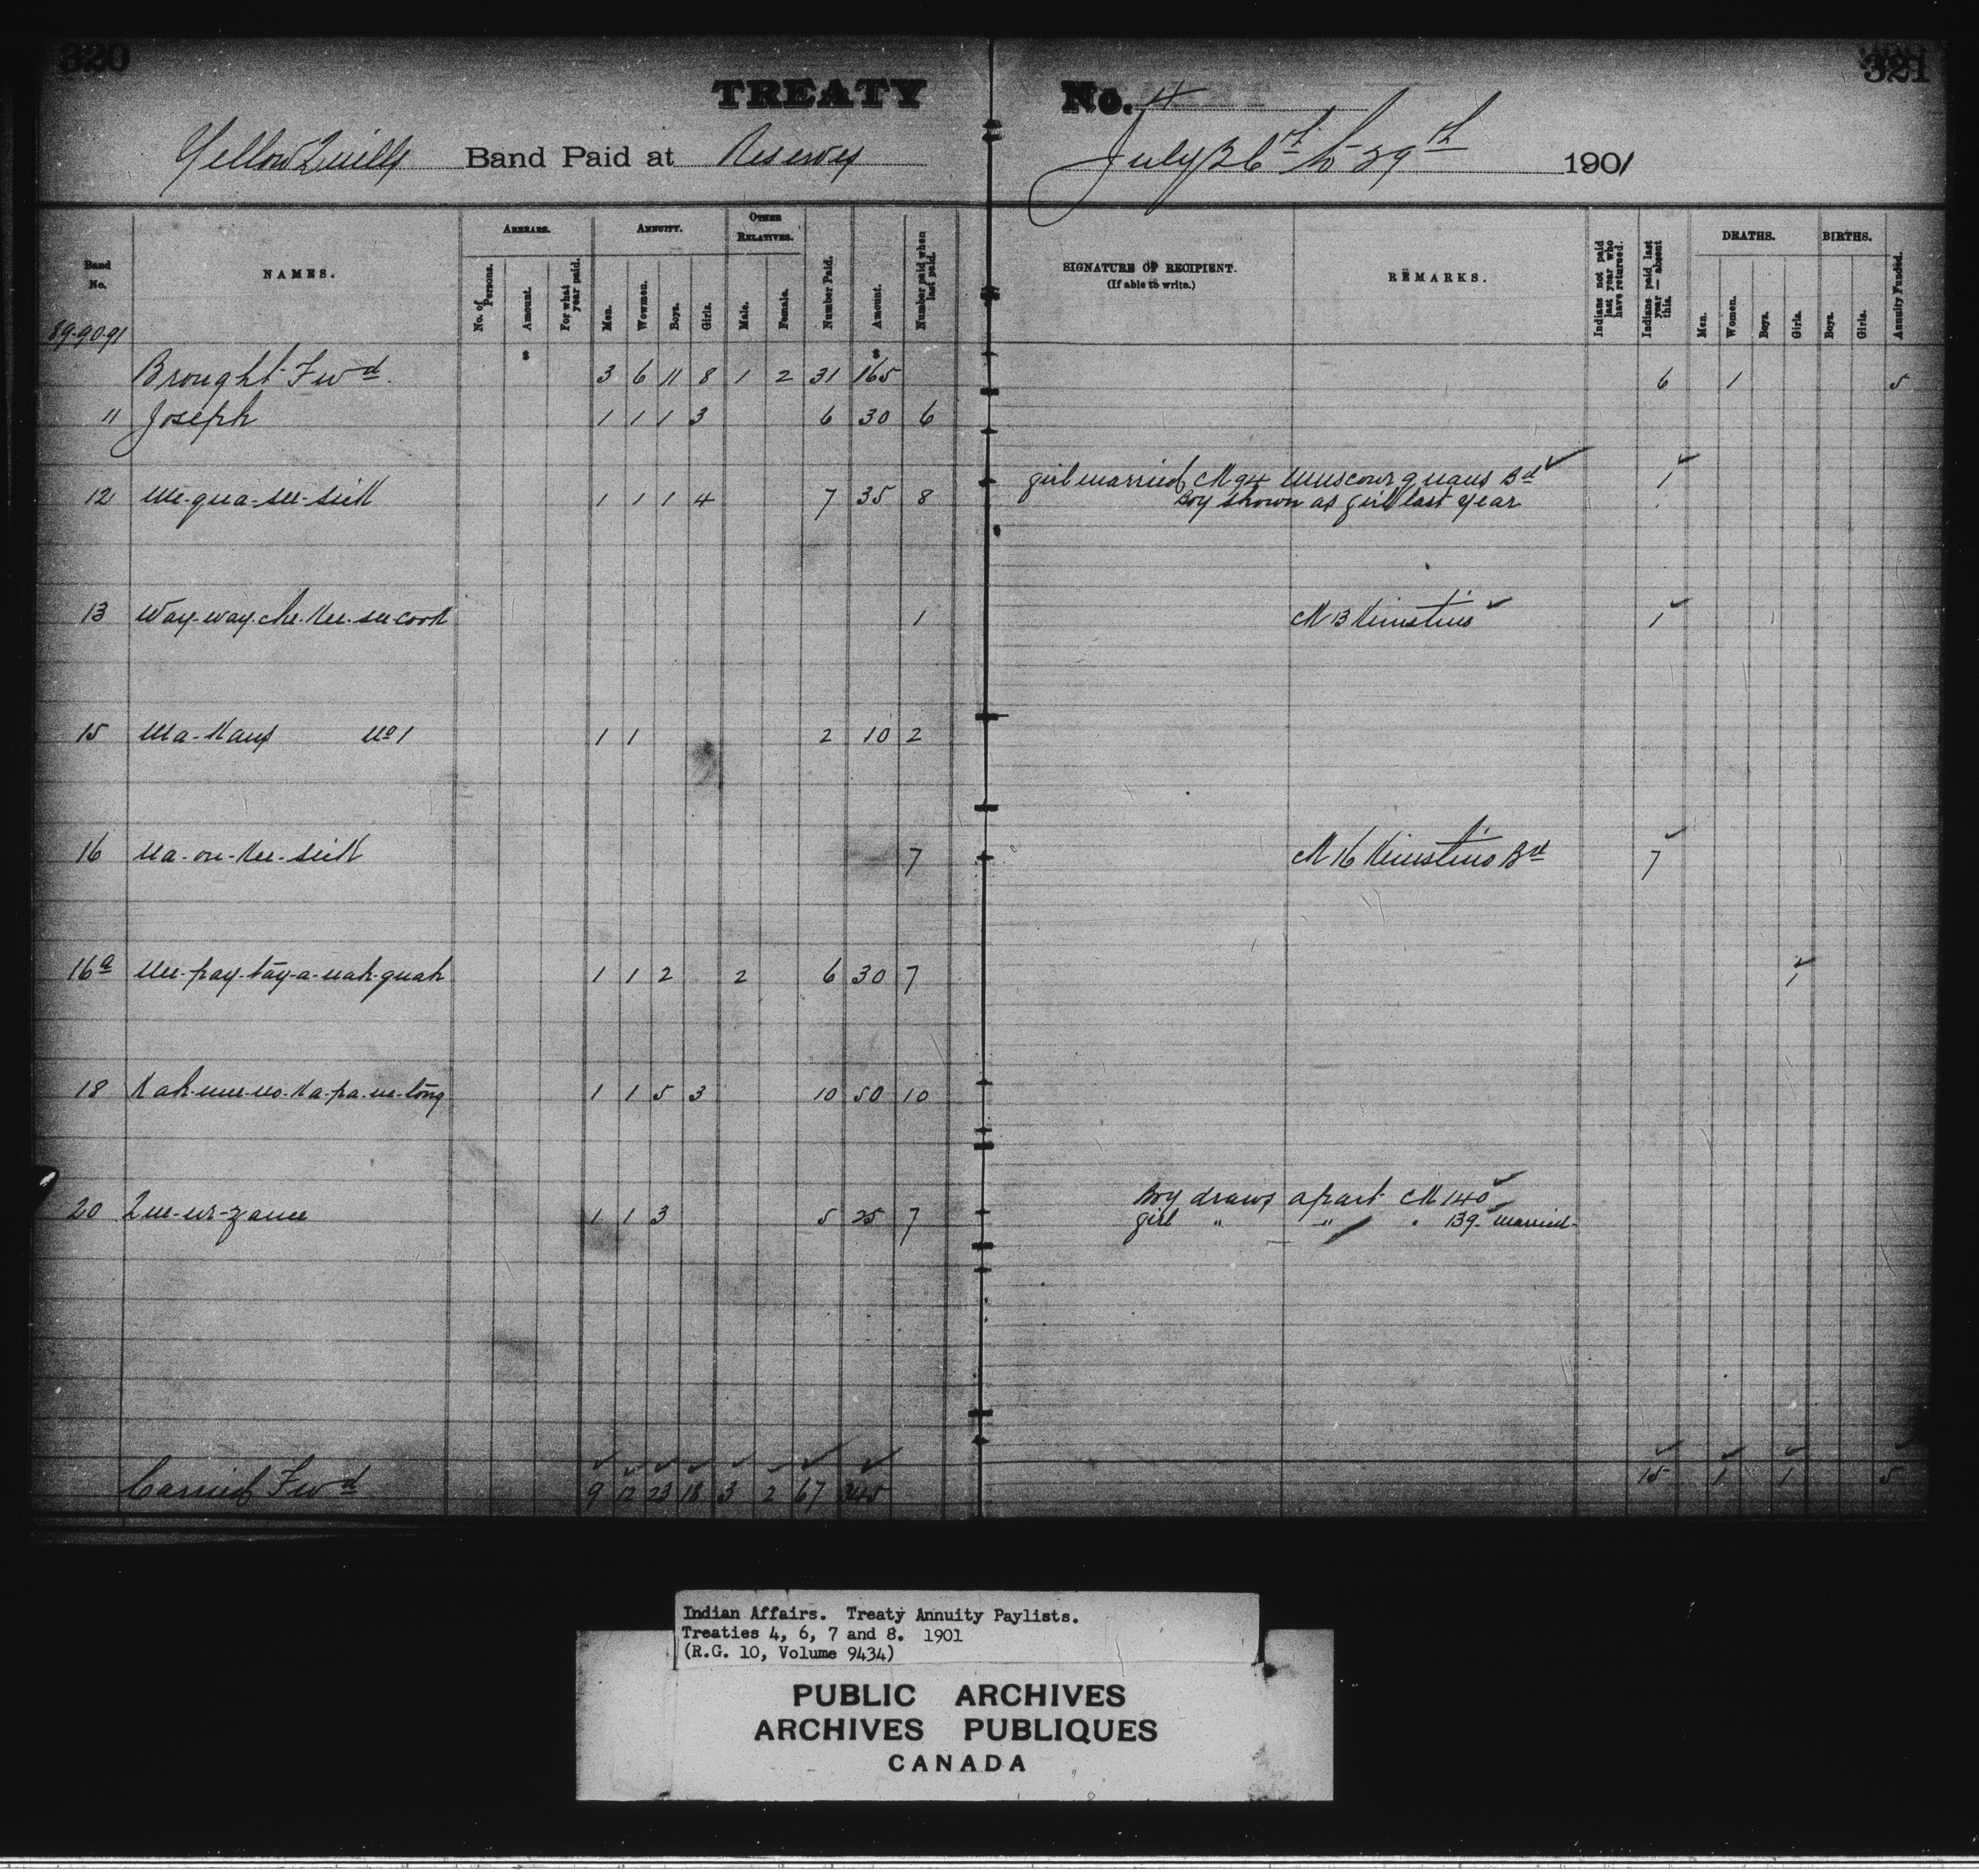 320
321
TREATY No. 4
Yellow Quills Band Paid at Reserves July 26th to 29th 1901
Band No.
NAMES.
ARREARS.
No. of Persons.
Amount.
For what year paid.
ANNUITY.
Men.
Wowmen.
Boys.
Girls.
OTHER RELATIVES.
Male.
Female.
Number Paid.
Amount.
Number paid when last paid.
SIGNATURE OF RECIPIENT.
(If able to write.)
REMARKS.
Indians not paid last year who have returned.
Indians paid last year — absent this.
DEATHS.
Men.
Women.
Boys.
Girls.
BIRTHS.
Boys.
Girls.
Annuity Funded.
89-90-91
$ $
Brought Fwd. 3 6 11 8 1 2 31 165 6 1 5
11 Joseph 1 1 1 3 6 30 6
12 Me-qua-see-sick 1 1 1 4 7 35 8 girl married, CK 94 Muscowquans Bd 1
Boy shown as girl last year
13 Way-way-che-kee-see-cook 1 CK 13 Kinistino 1
15 Ma-kaus No 1 1 1 2 10 2
16 Na-on-kee-sick 7 CK 16 Kinistino Bd 7
16a Nee-pay-tay-a-nah-quah 1 1 2 2 6 30 7 1
18 Kah-mee-no-ka-pa-we-tong 1 1 5 3 10 50 10
20 Que-we-zance 1 1 3 5 25 7 Boy draws apart CK 140
girl " " " 139 married
Carried Fwd 9 12 23 18 3 2 67 345 15 1 1 5
Indian Affairs. Treaty Annuity Paylists.
Treaties 4, 6, 7 and 8. 1901
(R.G. 10, Volume 9434)
PUBLIC ARCHIVES
ARCHIVES PUBLIQUES
CANADA